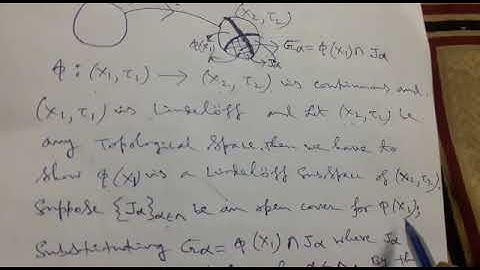 (X2, τ2)
φ(X1)
Gα = φ(X1) ∩ Jα
Jα
φ : (X1, τ1) → (X2, τ2) is continuous and
(X1, τ1) is Lindelöff and let (X2, τ2) be
any Topological space. then we have to
show φ(X1) is a Lindelöff subspace of (X2, τ2).
Suppose {Jα}α∈Λ be an open cover for φ(X1),
Substituting Gα = φ(X1) ∩ Jα where Jα
By th